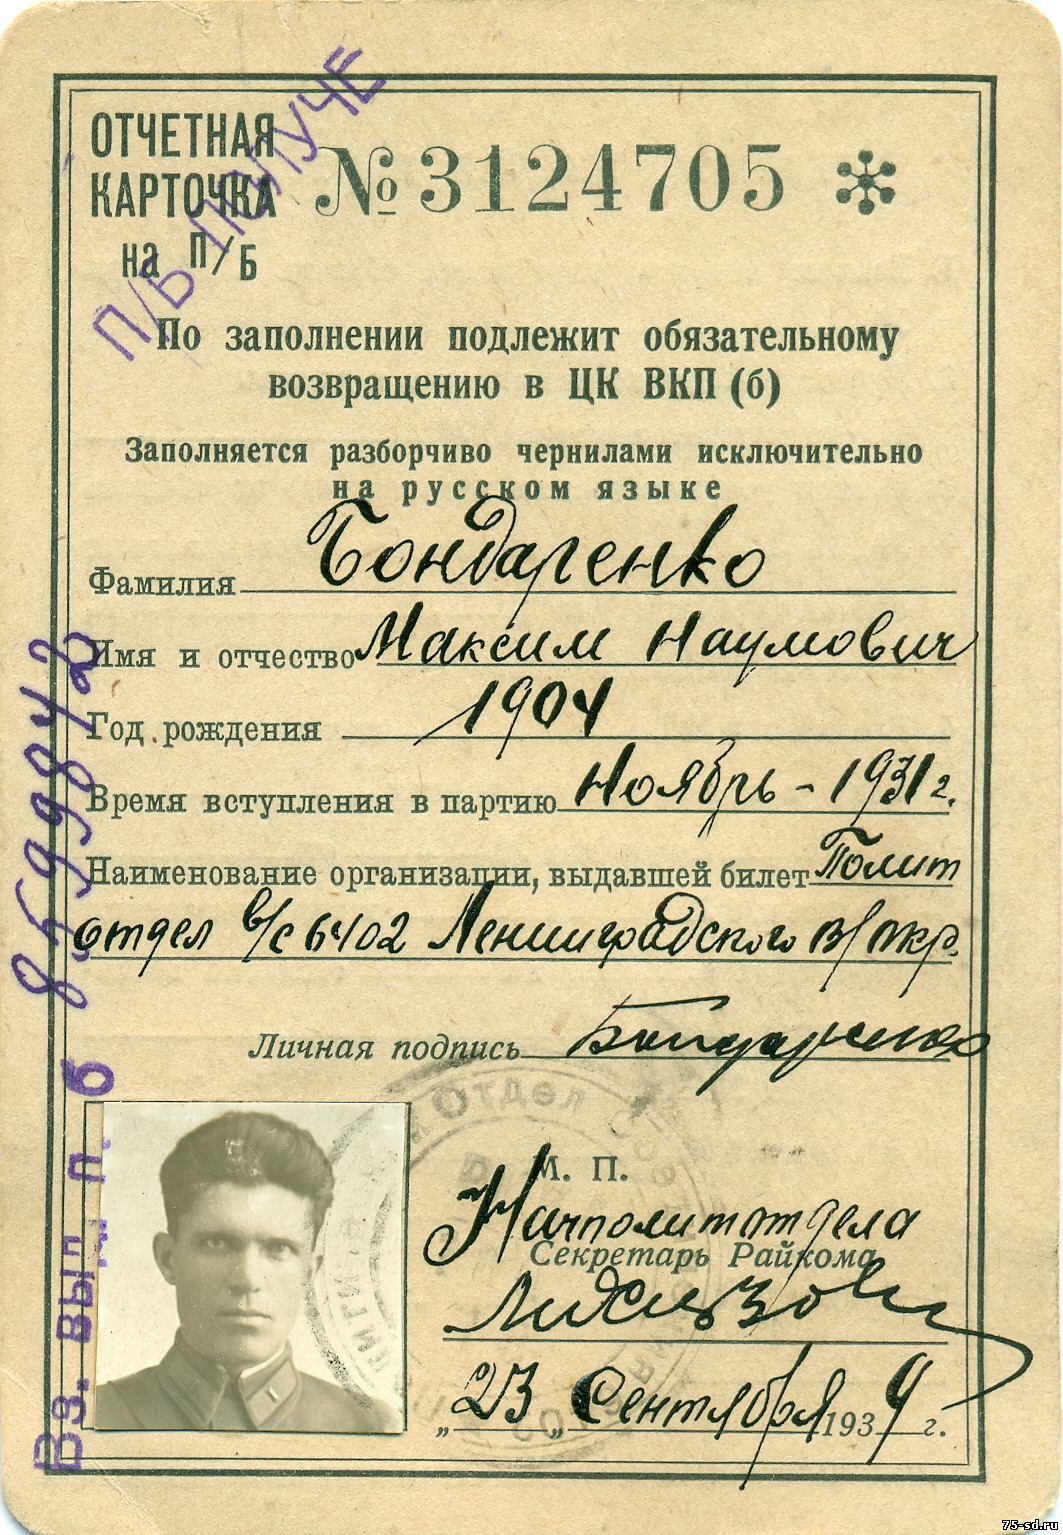 ОТЧЕТНАЯ
КАРТОЧКА
на П/Б
№ 3124705
По заполнении подлежит обязательному
возвращению в ЦК ВКП (б)
Заполняется разборчиво чернилами исключительно
на русском языке
Фамилия Бондаренко
Имя и отчество Максим Наумович
Год рождения 1904
Время вступления в партию Ноябрь - 1931 г.
Наименование организации, выдавшей билет Полит
отдел в/с 6402 Ленинградского в/окр.
Личная подпись Бондаренко
М. П.
Начполитотдела
Секретарь Райкома
„23„ Сентября 1939 г.
Вз. вып п б
75-sd.ru